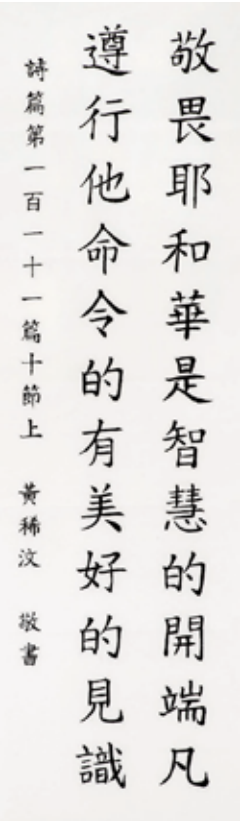 敬畏耶和華是智慧的開端凡
遵行他命令的有美好的見識
詩篇第一百一十一篇十節上 黃稀汶 敬書